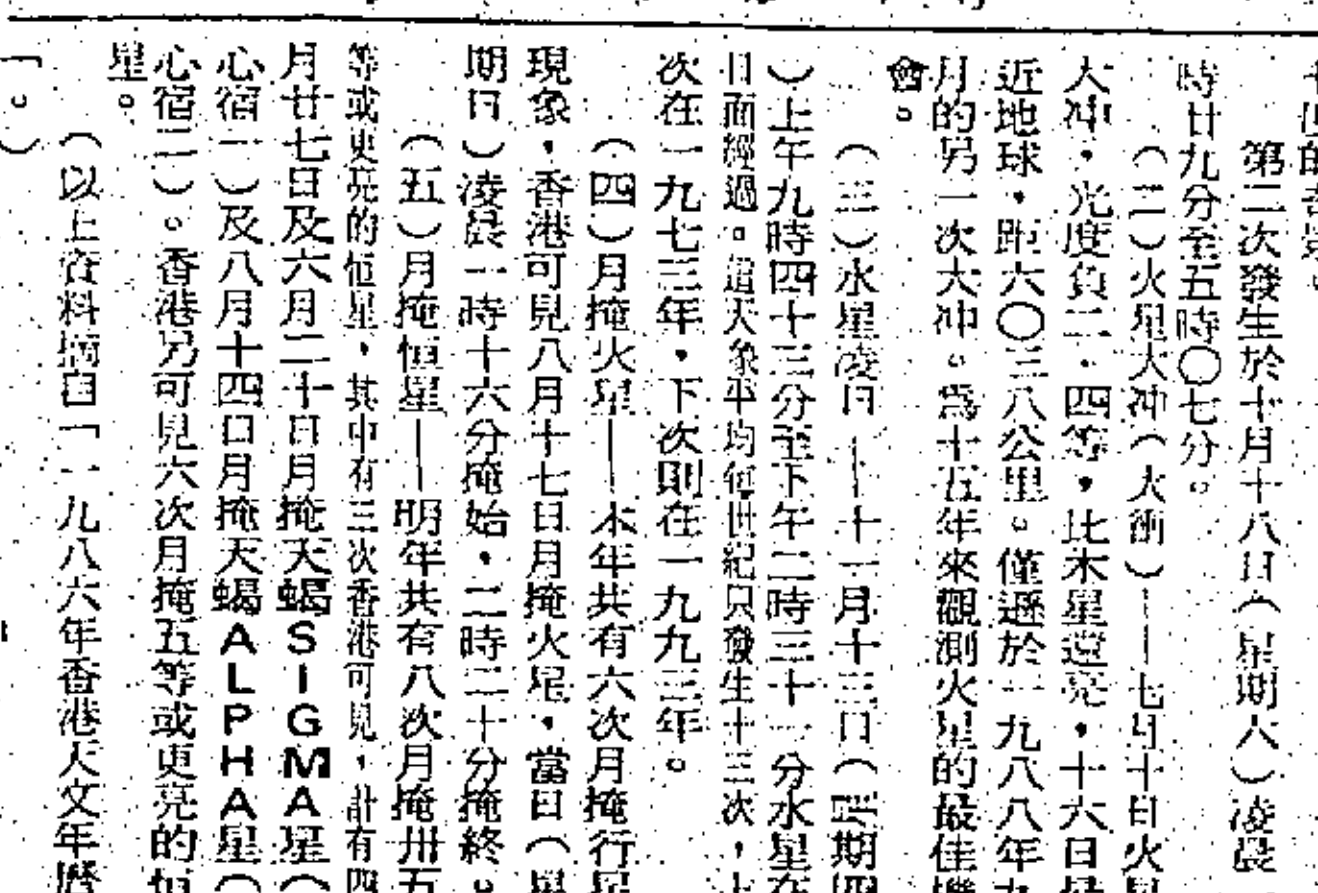 第二次發生於十月十八日（星期六）凌晨
時廿九分至五時〇七分。
（二）火星大冲（大衝）——七月十日火星
大冲，光度負二．四等，比木星還亮，十六日最
近地球，距六〇三八公里。僅遜於一九八八年九
月的另一次大冲。為十五年來觀測火星的最佳機
會。
（三）水星凌日——十一月十三日（星期四
）上午九時四十三分至下午二時三十一分水星在
日面經過。這天象平均每世紀只發生十三次，上
次在一九七三年，下次則在一九九三年。
（四）月掩火星——本年共有六次月掩行星
現象，香港可見八月十七日月掩火星，當日（星
期日）凌晨一時十六分掩始，二時二十分掩終。
（五）月掩恒星——明年共有八次月掩卅五
等或更亮的恒星，其中有三次香港可見，計有四
月廿七日及六月二十日月掩天蝎SIGMA星（
心宿一）及八月十四日月掩天蝎ALPHA星（
心宿二）。香港另可見六次月掩五等或更亮的恒
星。
（以上資料摘自「一九八六年香港天文年曆
「。）